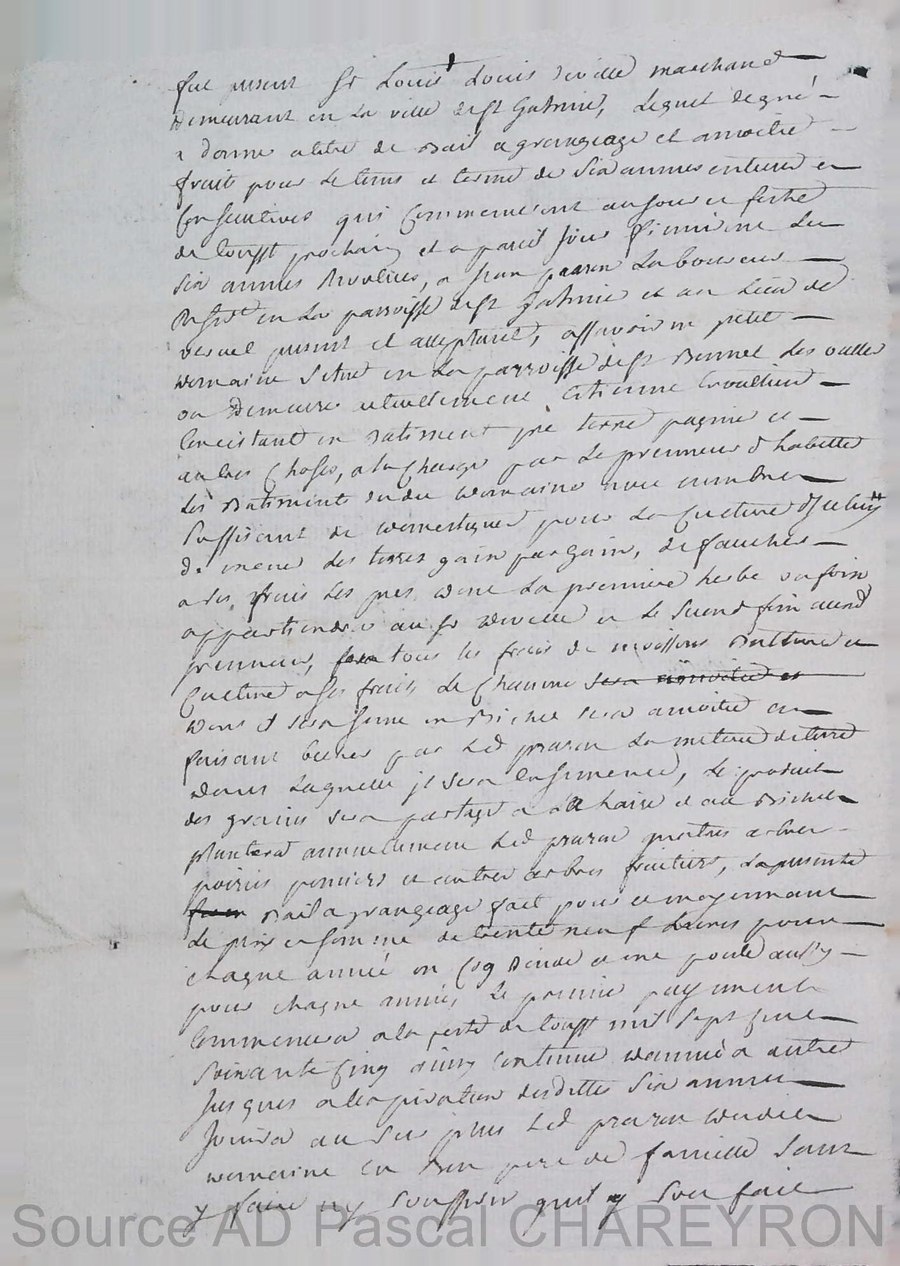 fut present Sr Louis Louis deville marchand
demeurant en la ville de St Galmier, lequel de gré
a donné a titre de Bail a grangeage et amoitié
fruit pour le tems et terme de six années entieres et
Consecutives qui Commenceront au jour et feste
de tousst prochain et a pareil jour finiront les
six années Revolües, a jean prazon Laboureur
Resident en la parroisse de St Galmier et au lieu de
present et acceptant, assavoir un petit
domaine Situé en la parroisse de St Bonnet les oulles
ou demeure actuellement Etienne
Consistant en Batiment pré terre paquier et
autres Choses, a la Charge par le prenneur d'habitter
les Batiment dudit domaine avec nombre
suffisant de domestiques pour la Culture d'Iceluy
de mener les terres gain par gain, de faucher
a ses frais les pres dont la premiere herbe ou foin
appartiendra au Sr deville et le second foin aud
prenneur, tous les frais de moissons Batture et
Culture a ses frais le Chanvre sera amoitié et
dont il sera semé un Bichet sera amoitié en
faisant par led prazon la meture de terre
dans laquelle il sera Ensemencé, le produit
des grains sera partagé a l'haire et au Bichet
plantera annuellement led prazon quatres arbres
poiriers pomiers et autres arbres fruitiers, la presente
Bail a grangeage fait pour et moyennant
le prix et somme de trente neuf Livres pour
chaque année un Coq Dinde et une poule aussy
pour chaque année, le premier payement
Commencera a la feste de tousst mil sept cent
soixante Cinq ainsy Continué d'année a autre
jusques a l'expiration desdittes six années
Jouira au surplus led prazon dudit
domaine en Bon pere de famille sans
y faire ny souffrir quil y soit fait
Source AD Pascal CHAREYRON